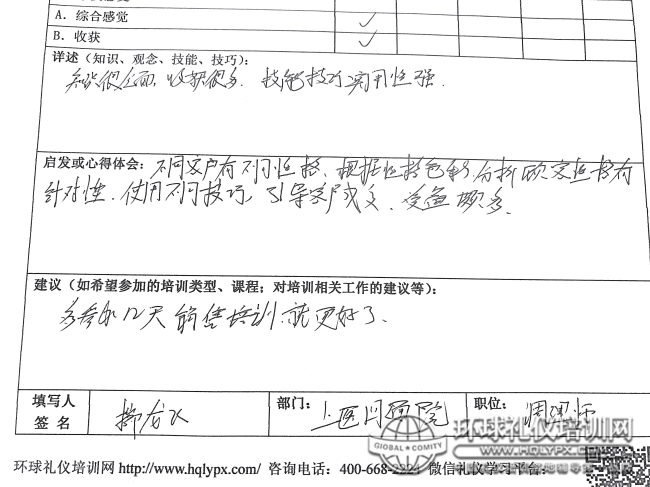 A. 综合感觉 ✓
B. 收获 ✓
详述（知识、观念、技能、技巧）：
知识很全面，收获很多，技能技巧实用性强。
启发或心得体会：不同客户有不同性格、根据性格色彩分析顾客性格有
针对性、使用不同技巧，引导客户成交、受益颇多。
建议（如希望参加的培训类型、课程；对培训相关工作的建议等）：
多参加几天销售培训就更好了。
填写人
签 名
部门：上医门诊部
职位：调理师
GLOBAL COMITY
环球礼仪培训网
WWW.HQLYPX.COM
环球礼仪培训网 http://www.hqlypx.com/ 咨询电话：400-668-2221 微信礼仪学习平台：